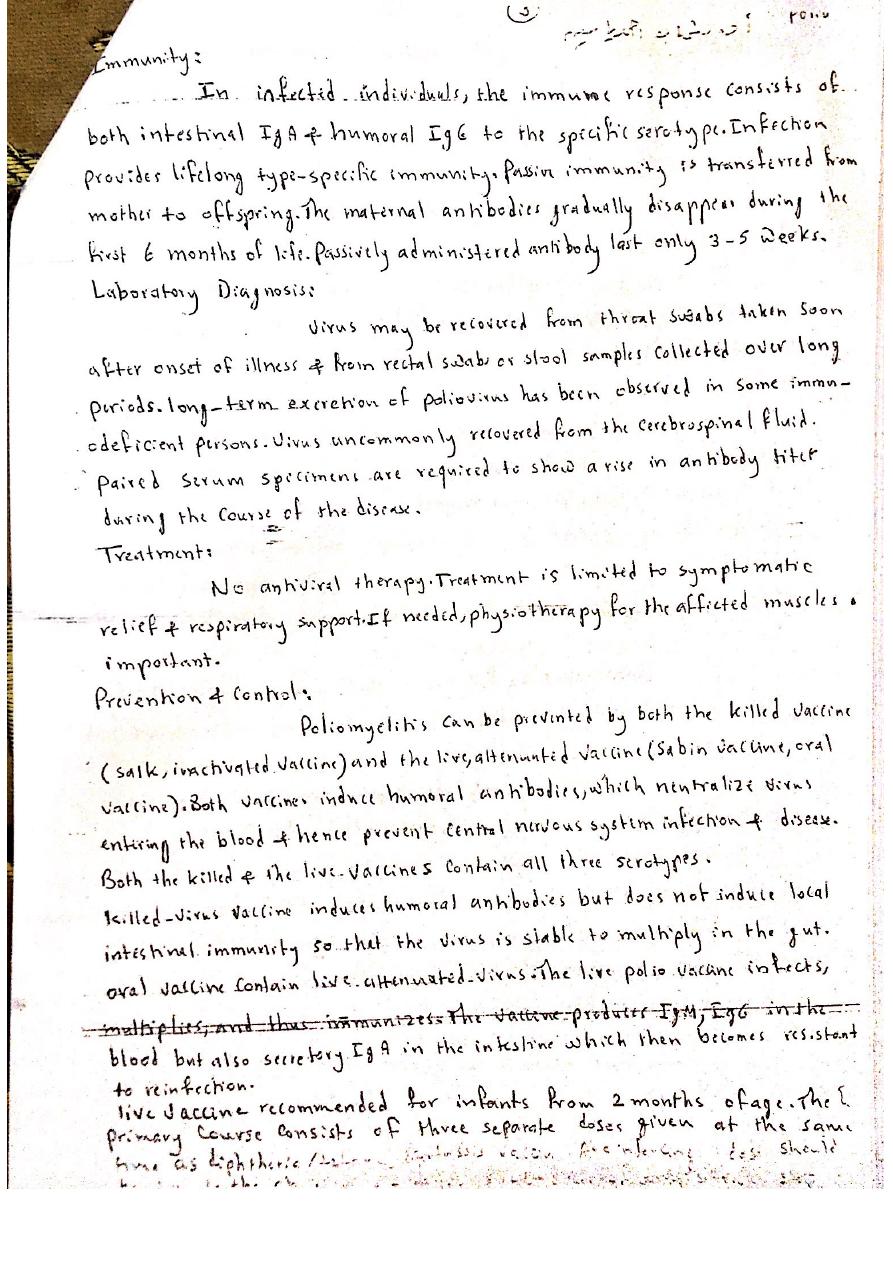 Immunity:
In infected individuals, the immune response consists of
both intestinal IgA & humoral IgG to the specific serotype. Infection
provides lifelong type-specific immunity. Passive immunity is transferred from
mother to offspring. The maternal antibodies gradually disappear during the
first 6 months of life. Passively administered antibody last only 3-5 weeks.
Laboratory Diagnosis:
Virus may be recovered from throat swabs taken soon
after onset of illness & from rectal swab or stool samples collected over long
periods. long-term excretion of poliovirus has been observed in some immu-
odeficient persons. Virus uncommonly recovered from the cerebrospinal fluid.
Paired serum specimens are required to show a rise in antibody titer
during the course of the disease.
Treatment:
No antiviral therapy. Treatment is limited to symptomatic
relief & respiratory support. If needed, physiotherapy for the afficted muscles
important.
Prevention & Control:
Poliomyelitis can be prevented by both the killed vaccine
(salk, inactivated vaccine) and the live, attenuated vaccine (Sabin vaccine, oral
vaccine). Both vaccines induce humoral antibodies, which neutralize virus
entering the blood & hence prevent central nervous system infection & disease.
Both the killed & the live-vaccines contain all three serotypes.
killed-virus vaccine induces humoral antibodies but does not induce local
intestinal immunity so that the virus is stable to multiply in the gut.
oral vaccine contain live attenuated-virus. The live polio vaccine infects,
multiplies, and thus immunizes. The vaccine produces IgM, IgG in the
blood but also secretory IgA in the intestine which then becomes resistant
to reinfection.
live vaccine recommended for infants from 2 months of age. The
primary course consists of three separate doses given at the same
time as diphtheria/ should